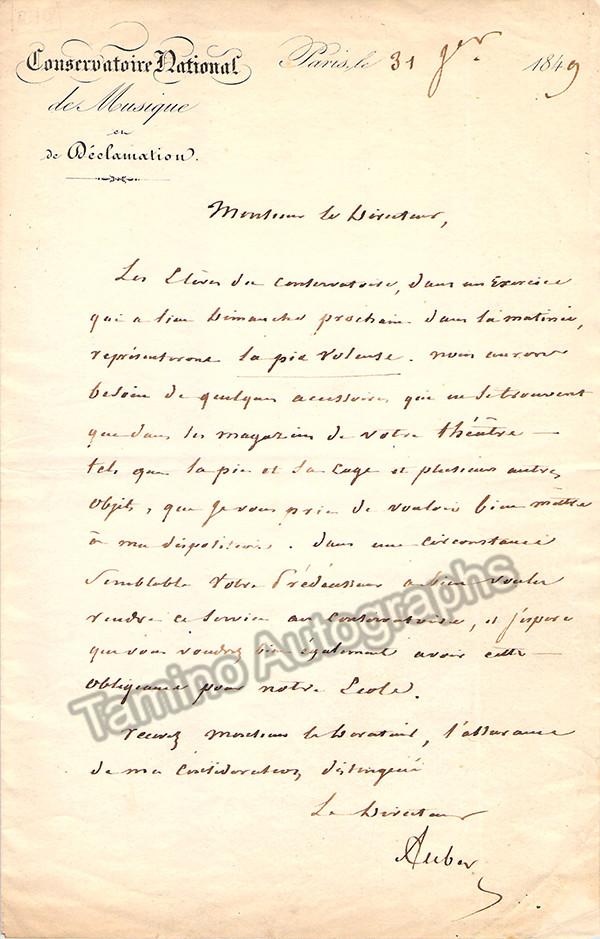 Conservatoire National
de Musique
et
de Déclamation.
Paris, le 31 Jer 1849
Monsieur le Directeur,
Les Élèves du Conservatoire, dans un Exercice
qui a lieu Dimanche prochain dans la matinée,
représenteront la pie voleuse. nous aurons
besoin de quelques accessoires qui ne se trouvent
que dans les magazins de votre théâtre
tels que la pie et sa cage et plusieurs autres
objets, que je vous prie de vouloir bien mettre
à ma disposition. dans une circonstance
semblable votre Prédécesseur a bien voulu
rendre ce service au Conservatoire, et j'espère
que vous voudrez bien également avoir cette
obligeance pour notre École.
recevez Monsieur le Directeur, l'assurance
de ma considération distinguée
Le Directeur
Auber
Tamino Autographs